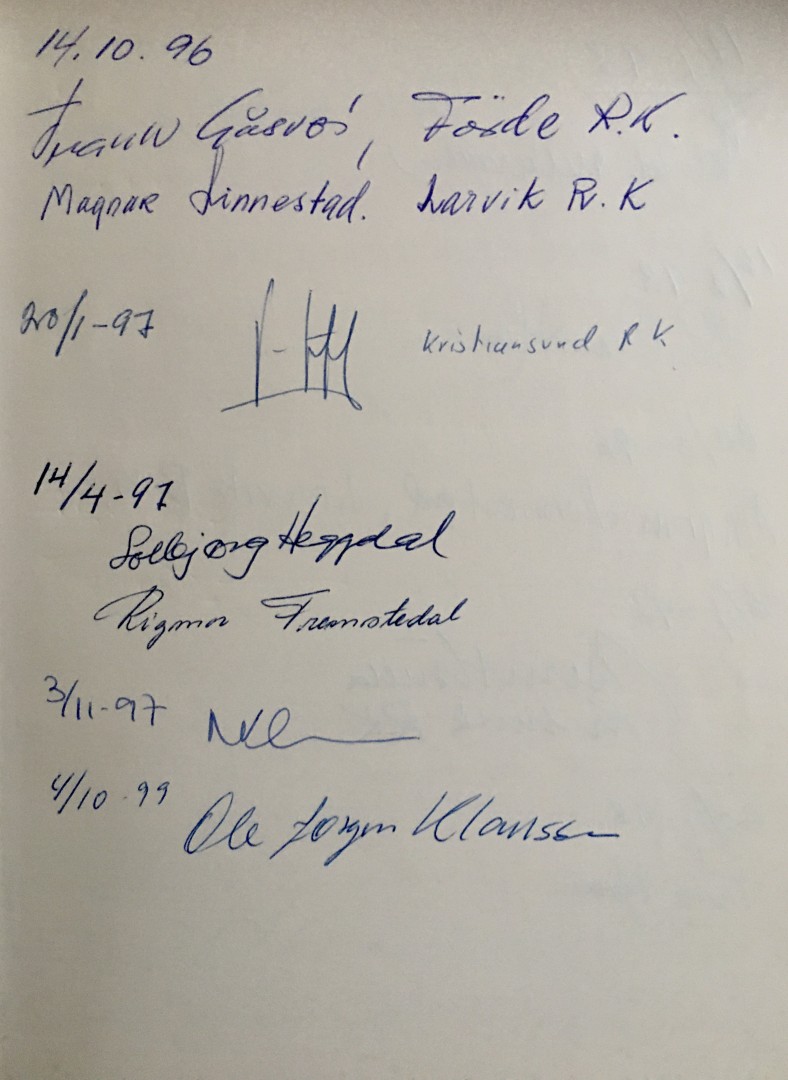 14.10.96
Gåsvær, Förde R.K.
Magnar Linnestad. Larvik R.K
20/1-97 Kristiansund R K
14/4-97
Solbjørg Heggdal
Rigmor Fremstedal
3/11-97
4/10-99
Ole Jørgen Klaussen